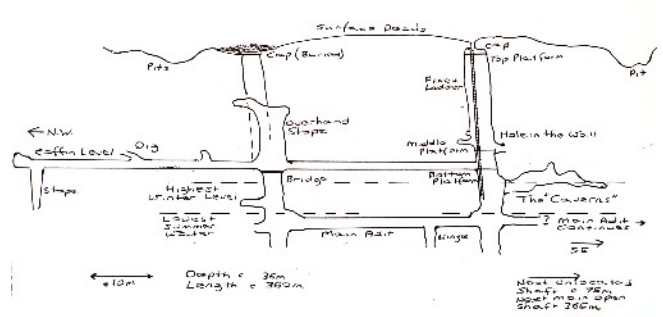 Surface Deads
Cap (Buried)
Cap
Top Platform
Pits
Pit
Fixed
Ladder
Overhand
Stope
← N.W.
Coffin Level
Dig
Middle
Platform
Hole in the Wall
Stope
Bridge
Bottom
Platform
Highest
Winter Level
The "Caverns"
Lowest
Summer
Water
Main Adit
Winze
? Main Adit
Continues
SE
c10m
Depth c 35m
Length c 350m
Next unlocated
Shaft c 75m
Next main open
Shaft 365m